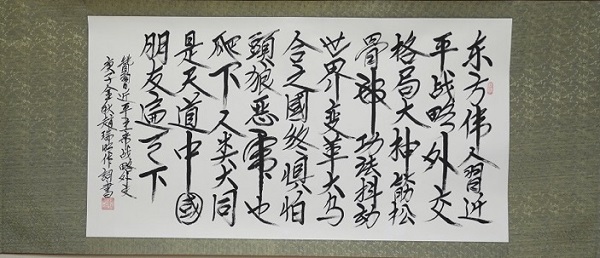 东方伟人習近
平战略外交
格局大抻筋松
骨神功法抖动
世界变革大乌
合之國终惧怕
頭狼惡霸也
爬下人类大同
是天道中國
朋友遍天下
赞習近平主席战略外交
庚子金秋趙瑞作詞書